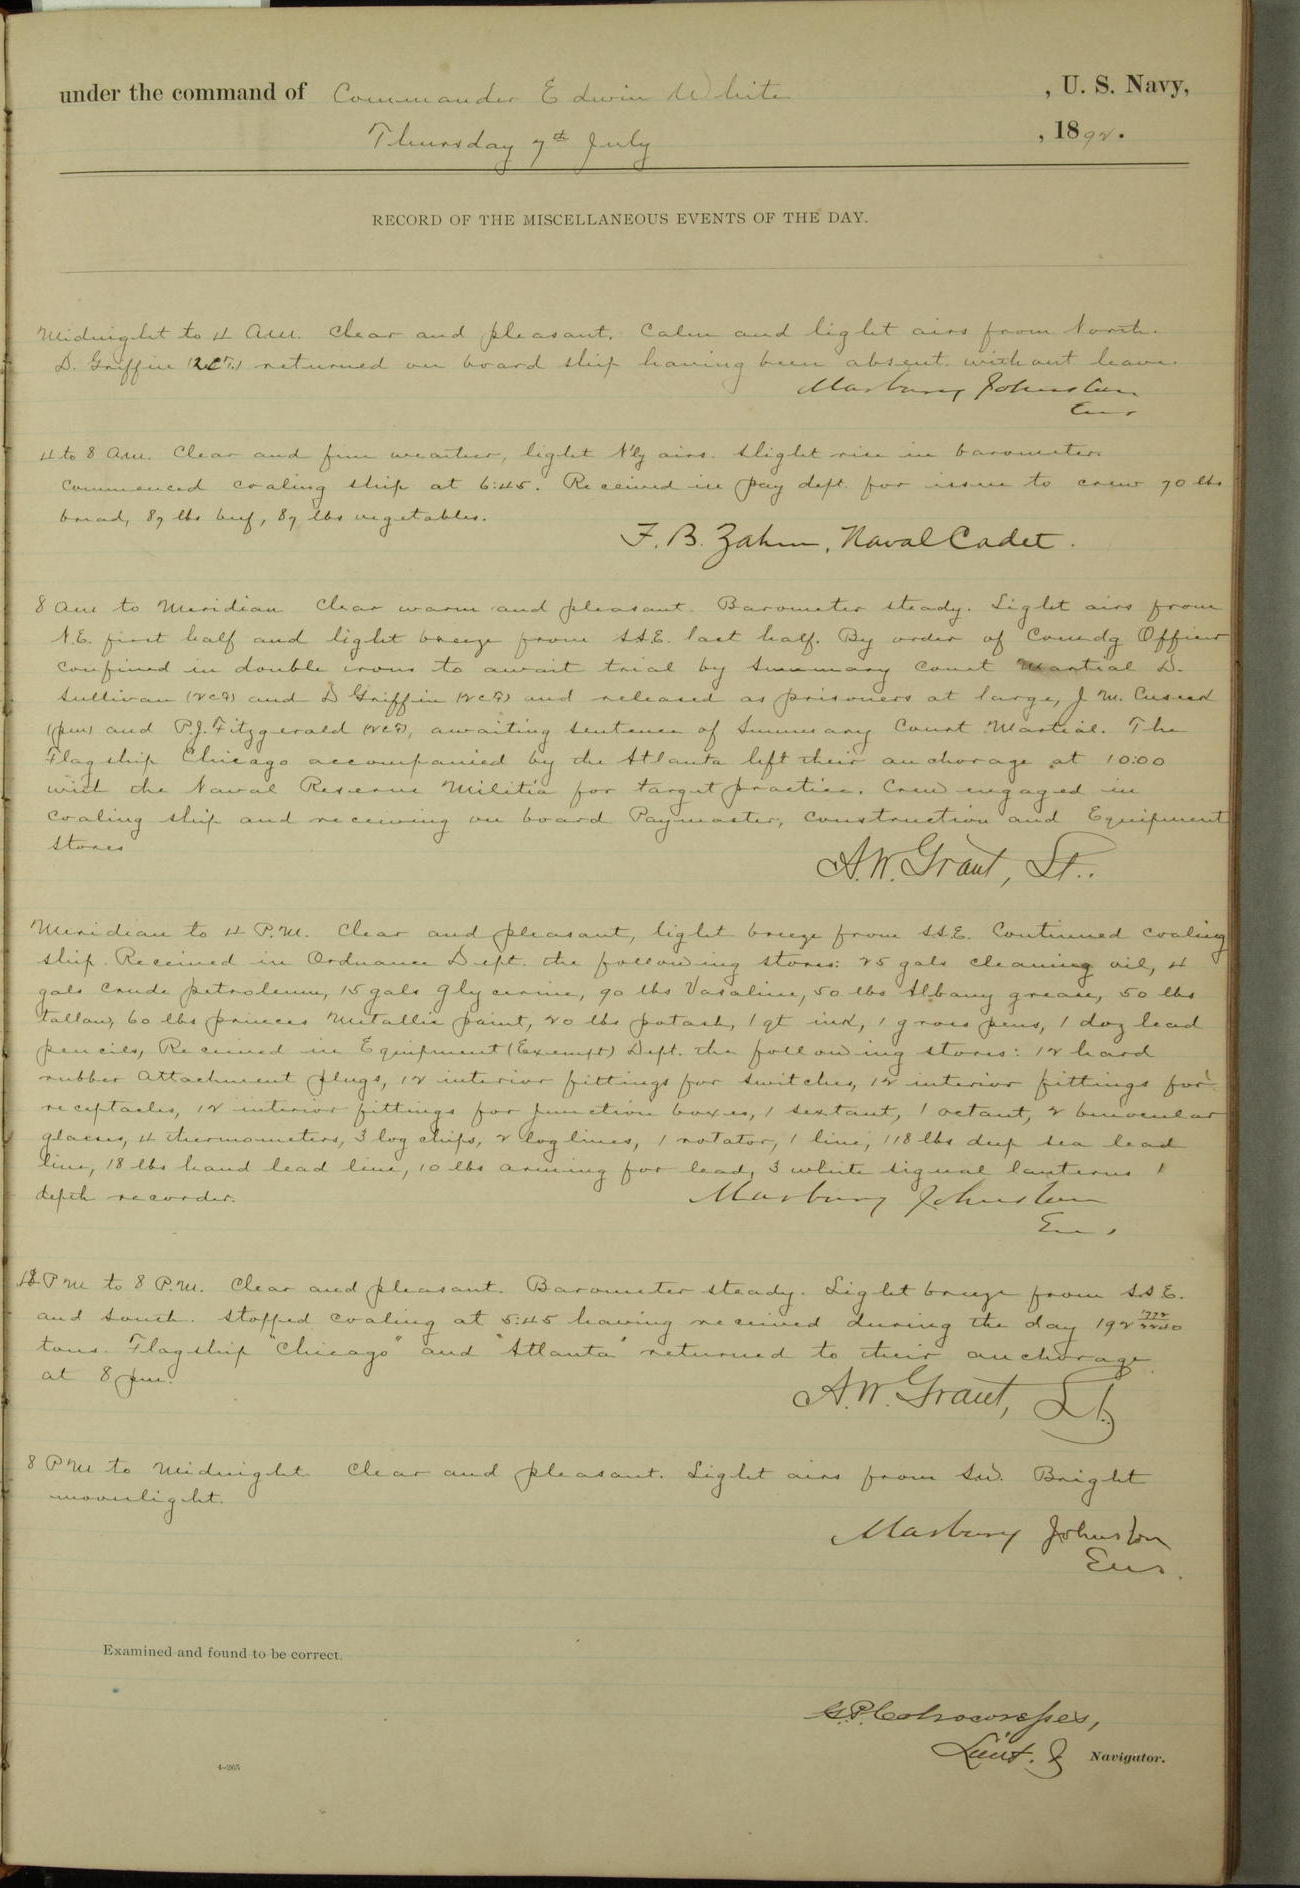 under the command of Commander Edwin White , U. S. Navy,
Thursday 7th July , 1892.
RECORD OF THE MISCELLANEOUS EVENTS OF THE DAY.
Midnight to 4 A.M. Clear and pleasant. Calm and light airs from North.
D. Griffin (2CF) returned on board ship having been absent without leave.
Marbury Johnston
Ens.
4 to 8 A.M. Clear and fine weather, light N'ly airs. Slight rise in barometer.
Commenced coaling ship at 6:45. Received in pay dept. for issue to crew 70 lbs
bread, 87 lbs beef, 87 lbs vegetables.
F. B. Zahm, Naval Cadet.
8 AM to Meridian Clear warm and pleasant. Barometer steady. Light airs from
N.E. first half and light breeze from SSE. last half. By order of Comdg Officer
confined in double irons to await trial by Summary Court Martial D.
Sullivan (2CF) and D Griffin (2CF) and released as prisoners at large, J. M. Cusick
and P.J. Fitzgerald (2CF), awaiting sentence of Summary Court Martial. The
Flagship Chicago accompanied by the Atlanta left their anchorage at 10:00
with the Naval Reserve Militia for target practice. Crew engaged in
coaling ship and receiving on board Paymaster, Construction and Equipment
stores
A. W. Grant, Lt.
Meridian to 4 P.M. Clear and pleasant, light breeze from SSE. Continued coaling
ship. Received in Ordnance Dept. the following stores: 25 gals cleaning oil, 4
gals crude petroleum, 15 gals glycerine, 90 lbs Vasaline, 50 lbs Albany grease, 50 lbs
tallow, 60 lbs princes metallic paint, 20 lbs potash, 1 qt ink, 1 gross pens, 1 doz lead
pencils, Received in Equipment (Exempt) Dept. the following stores: 12 hard
rubber attachment plugs, 12 interior fittings for switches, 12 interior fittings for
receptacles, 12 interior fittings for junction boxes, 1 sextant, 1 octant, 2 binocular
glasses, 4 thermometers, 3 log chips, 2 log lines, 1 rotator, 1 line, 118 lbs deep sea lead
line, 18 lbs hand lead line, 10 lbs arming for lead, 3 white signal lanterns 1
depth recorder.
Marbury Johnston
Ens.
4 PM to 8 P.M. Clear and pleasant. Barometer steady. Light breeze from SSE.
and South. Stopped coaling at 5:45 having received during the day 192 1772/2240
tons. Flagship "Chicago" and "Atlanta" returned to their anchorage
at 8 pm.
A. W. Grant, Lt.
8 PM to Midnight Clear and pleasant. Light airs from SW. Bright
moonlight.
Marbury Johnston
Ens.
Examined and found to be correct.
G. P. Colvocoresses,
Lieut. & Navigator.
4-265